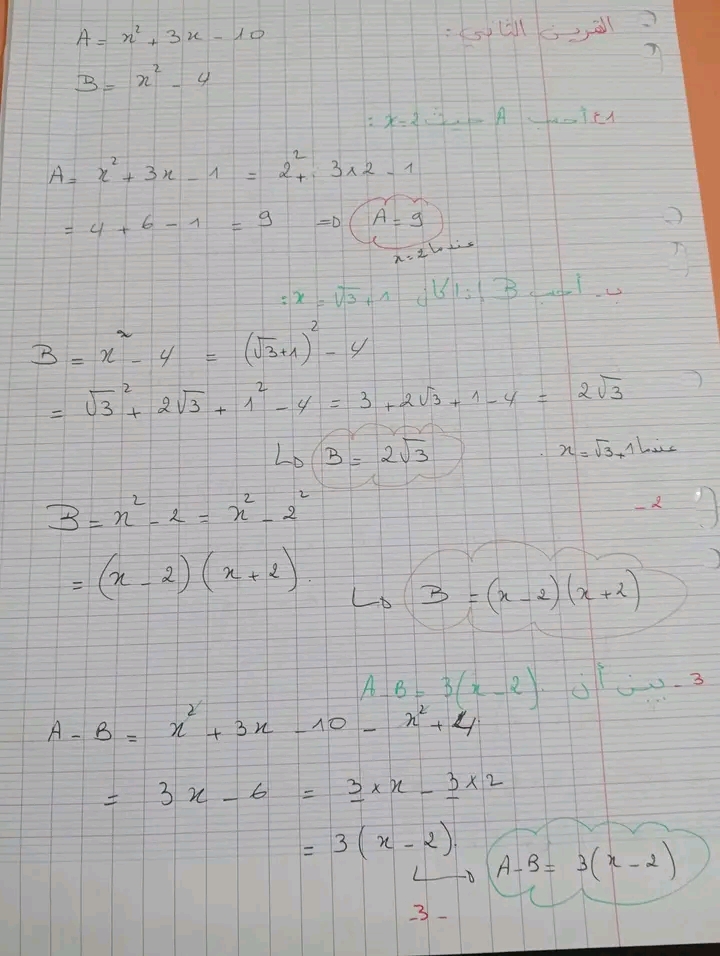 التمرين الثاني :
A = x² + 3x - 10
B = x² - 4
1-أ أحسب A حيث x=2 :
A = x² + 3x - 1 = 2² + 3×2 - 1
= 4 + 6 - 1 = 9 ⇒ A = 9
عندما x=2
ب- أحسب B إذا كان x = √3+1 :
B = x² - 4 = (√3+1)² - 4
= √3² + 2√3 + 1² - 4 = 3 + 2√3 + 1 - 4 = 2√3
↳ B = 2√3 عندما x = √3+1 .
2-
B = x² - 2 = x² - 2²
= (x - 2)(x + 2).
↳ B = (x - 2)(x + 2)
3- بين أن A-B = 3(x-2).
A - B = x² + 3x - 10 - x² + 4
= 3x - 6 = 3×x - 3×2
= 3(x - 2).
↳ A-B = 3(x-2)
-3-